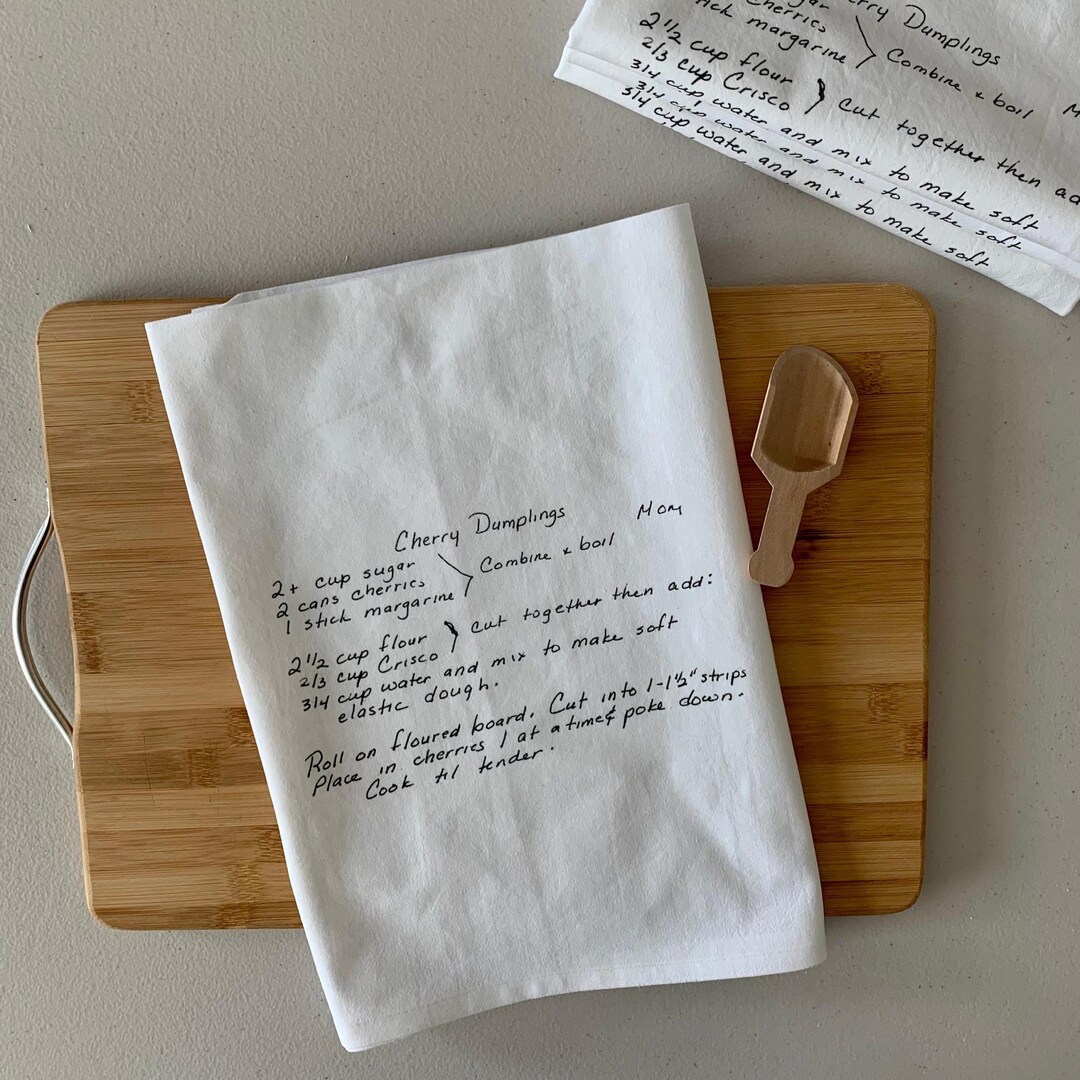 Cherry Dumplings Mom
2+ cup sugar
2 cans cherries
1 stick margarine
Combine & boil
2 1/2 cup flour
2/3 cup Crisco
cut together then add:
3/4 cup water and mix to make soft
elastic dough.
Roll on floured board. Cut into 1-1 1/2" strips
Place in cherries 1 at a time & poke down.
Cook til tender.
Dumplings
cherries
stick margarine
Combine & boil
2 1/2 cup flour
2/3 cup Crisco
cut together then
3/4 cup water and mix to make soft
3/4 cup water and mix to make soft
3/4 cup water and mix to make soft